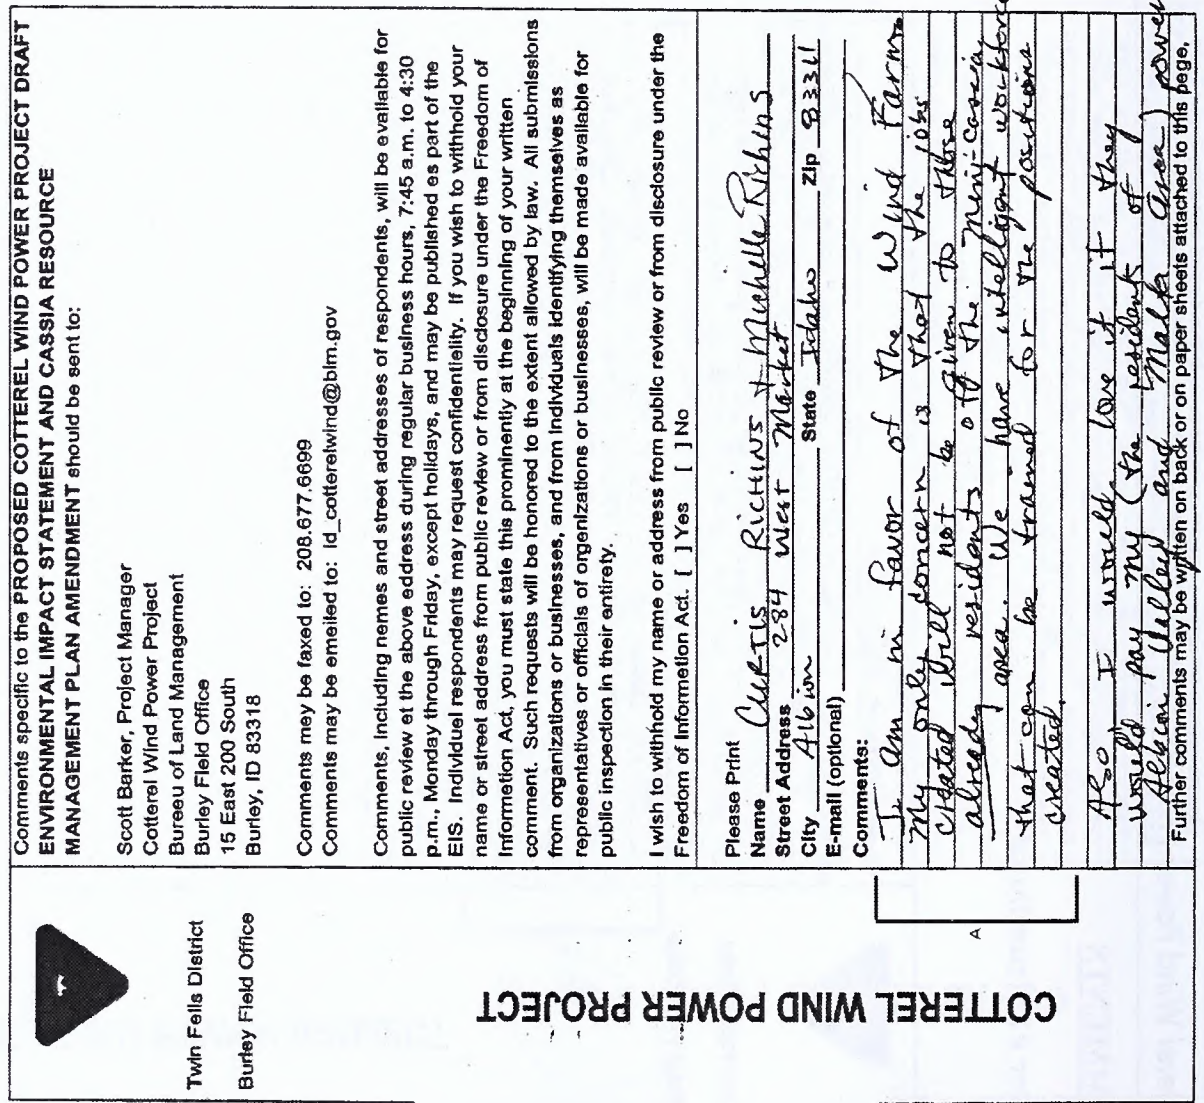 Twin Falls District
Burley Field Office
COTTEREL WIND POWER PROJECT
Comments specific to the PROPOSED COTTEREL WIND POWER PROJECT DRAFT
ENVIRONMENTAL IMPACT STATEMENT AND CASSIA RESOURCE
MANAGEMENT PLAN AMENDMENT should be sent to:
Scott Barker, Project Manager
Cotterel Wind Power Project
Bureau of Land Management
Burley Field Office
15 East 200 South
Burley, ID 83318
Comments may be faxed to: 208.677.6699
Comments may be emailed to: id_cotterelwind@blm.gov
Comments, including names and street addresses of respondents, will be available for
public review at the above address during regular business hours, 7:45 a.m. to 4:30
p.m., Monday through Friday, except holidays, and may be published as part of the
EIS. Individual respondents may request confidentiality. If you wish to withhold your
name or street address from public review or from disclosure under the Freedom of
Information Act, you must state this prominently at the beginning of your written
comment. Such requests will be honored to the extent allowed by law. All submissions
from organizations or businesses, and from individuals identifying themselves as
representatives or officials of organizations or businesses, will be made available for
public inspection in their entirety.
I wish to withhold my name or address from public review or from disclosure under the
Freedom of Information Act. [ ] Yes [ ] No
Please Print
Name Curtis Richins + Michelle Richins
Street Address 284 West Market
City Albion State Idaho Zip 83311
E-mail (optional)
Comments:
I am in favor of the Wind Farm.
My only concern is that the jobs
created will not be given to those
already residents of the Mini-Cassia
area. We have intelligent workforce
that can be trained for the positions
created.
Also I would love it if they
would pay my (the resident of
Albion Valley and Malta area) power
Further comments may be written on back or on paper sheets attached to this page.
A